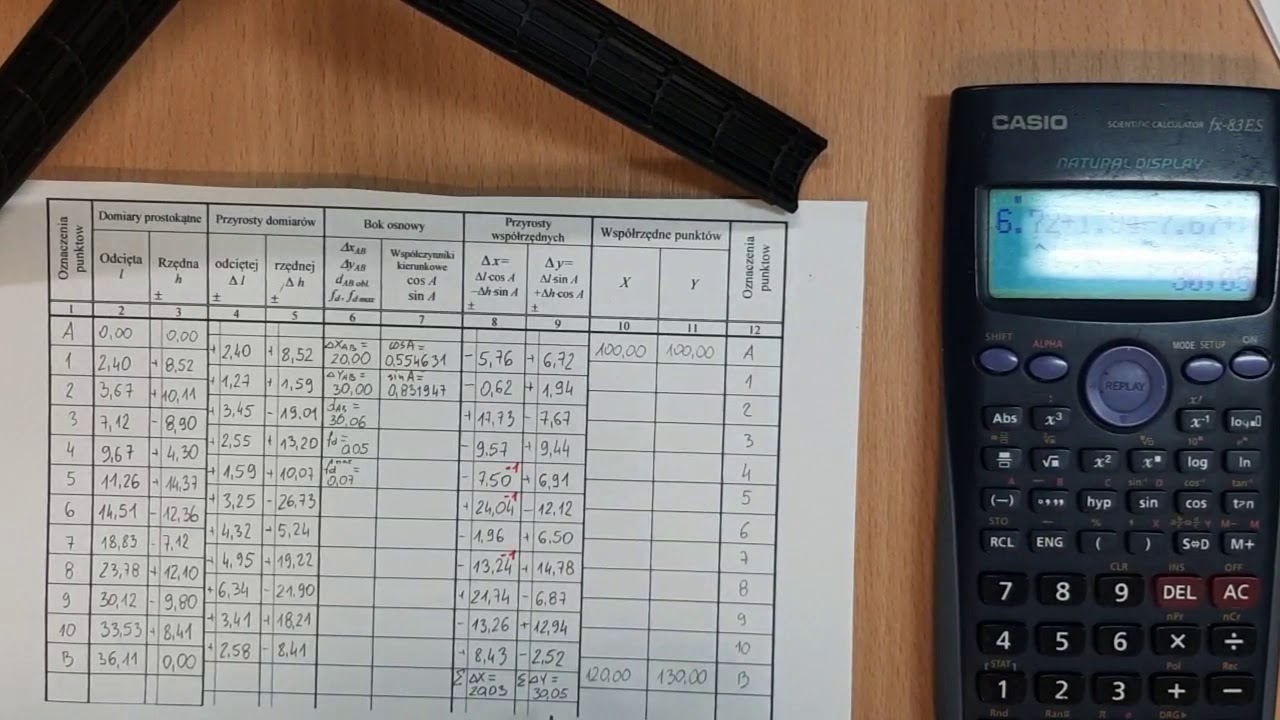 CASIO
SCIENTIFIC CALCULATOR fx-83ES
NATURAL DISPLAY
Oznaczenia punktów
Domiary prostokątne
Przyrosty domiarów
Bok osnowy
Przyrosty współrzędnych
Współrzędne punktów
Oznaczenia punktów
Odcięta l
Rzędna h ±
odciętej Δ l ±
rzędnej Δ h ±
Δx_AB
Δy_AB
d_AB obl.
f_d, f_d max
Współczynniki kierunkowe
cos A
sin A
Δ x=
Δl·cos A
−Δh·sin A
±
Δ y=
Δl·sin A
+Δh·cos A
±
X
Y
1 2 3 4 5 6 7 8 9 10 11 12
A 0,00 0,00
+ 2,40 + 8,52 ΔX_AB = 20,00 cosA = 0,554631 - 5,76 + 6,72 100,00 100,00 A
1 2,40 + 8,52
+ 1,27 + 1,59 ΔY_AB = 30,00 sinA = 0,831947 - 0,62 + 1,94 1
2 3,67 + 10,11
+ 3,45 - 19,01 d_AB = 36,06 + 17,73 - 7,67 2
3 7,12 - 8,90
+ 2,55 + 13,20 fd = 0,05 - 9,57 + 9,44 3
4 9,67 + 4,30
+ 1,59 + 10,07 0,07 - 7,50 -1 + 6,91 4
5 11,26 + 14,37
+ 3,25 - 26,73 + 24,04 -1 - 12,12 5
6 14,51 - 12,36
+ 4,32 + 5,24 - 1,96 + 6,50 6
7 18,83 - 7,12
+ 4,95 + 19,22 - 13,24 -1 + 14,78 7
8 23,78 + 12,10
+ 6,34 - 21,90 + 21,74 - 6,87 8
9 30,12 - 9,80
+ 3,41 + 18,21 - 13,26 + 12,94 9
10 33,53 + 8,41
+ 2,58 - 8,41 + 8,43 - 2,52 10
B 36,11 0,00
Σ ΔX = 20,03 Σ ΔY = 30,05 120,00 130,00 B
SHIFT ALPHA MODE SETUP ON
REPLAY
Abs x³ x⁻¹
√ x² log ln
(−) hyp sin cos tan
STO
RCL ENG ( ) S⇔D M+
CLR INS OFF
7 8 9 DEL AC
nPr nCr
4 5 6 × ÷
STAT Pol Rec
1 2 3 + −
Rnd Ran# π e DRG▸